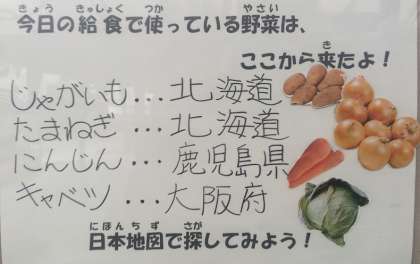 きょう きゅうしょく つか やさい
今日の給食で使っている野菜は、
き
ここから来たよ！
じゃがいも…北海道
たまねぎ…北海道
にんじん…鹿児島県
キャベツ…大阪府
にほんちず さが
日本地図で探してみよう！